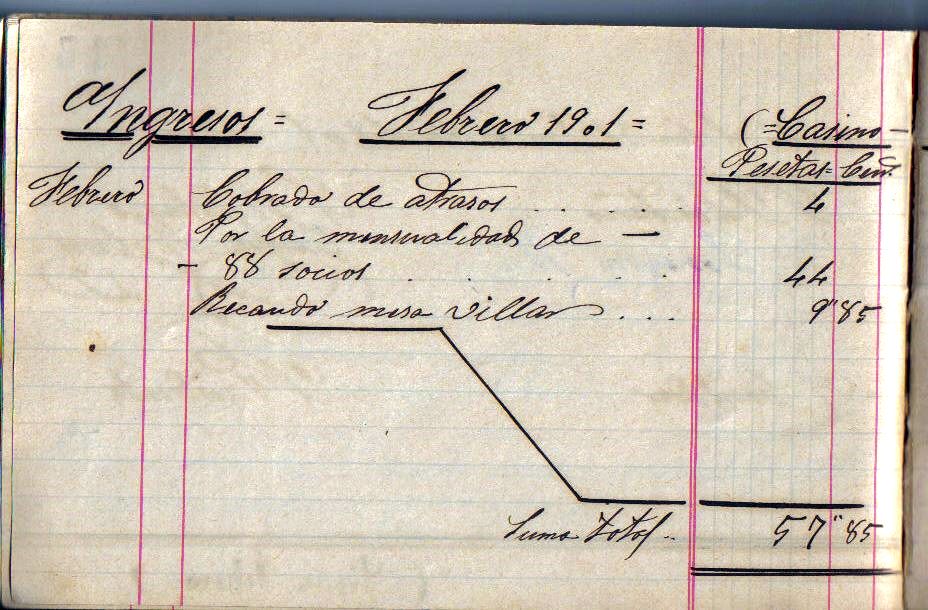 Ingresos = Febrero 1901 = (=Casino-
Pesetas=Cént.
Febrero Cobrado de atrasos . . . . . . 4
Por la mensualidad de —
- 88 socios . . . . . . 44
Recaudo mesa villar . . . 9"85
Suma total.. 57"85